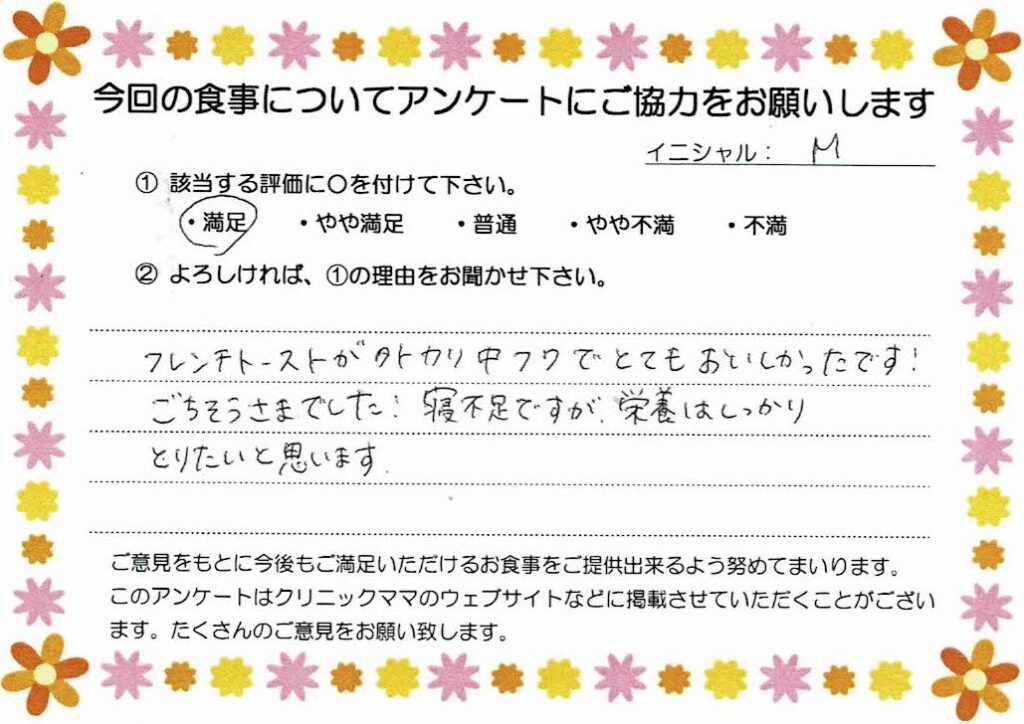 今回の食事についてアンケートにご協力をお願いします
イニシャル： M
① 該当する評価に○を付けて下さい。
・満足 ・やや満足 ・普通 ・やや不満 ・不満
② よろしければ、①の理由をお聞かせ下さい。
フレンチトーストが外カリ中フワでとてもおいしかったです！
ごちそうさまでした！寝不足ですが、栄養はしっかり
とりたいと思います.
ご意見をもとに今後もご満足いただけるお食事をご提供出来るよう努めてまいります。
このアンケートはクリニックママのウェブサイトなどに掲載させていただくことがござい
ます。たくさんのご意見をお願い致します。